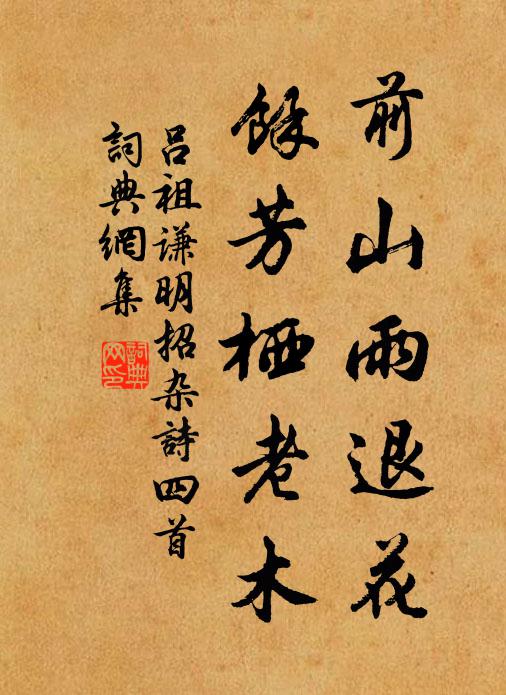 前山雨退花
餘芳栖老木
吕祖谦明招杂詩四首
詞典網集
詞典
网印